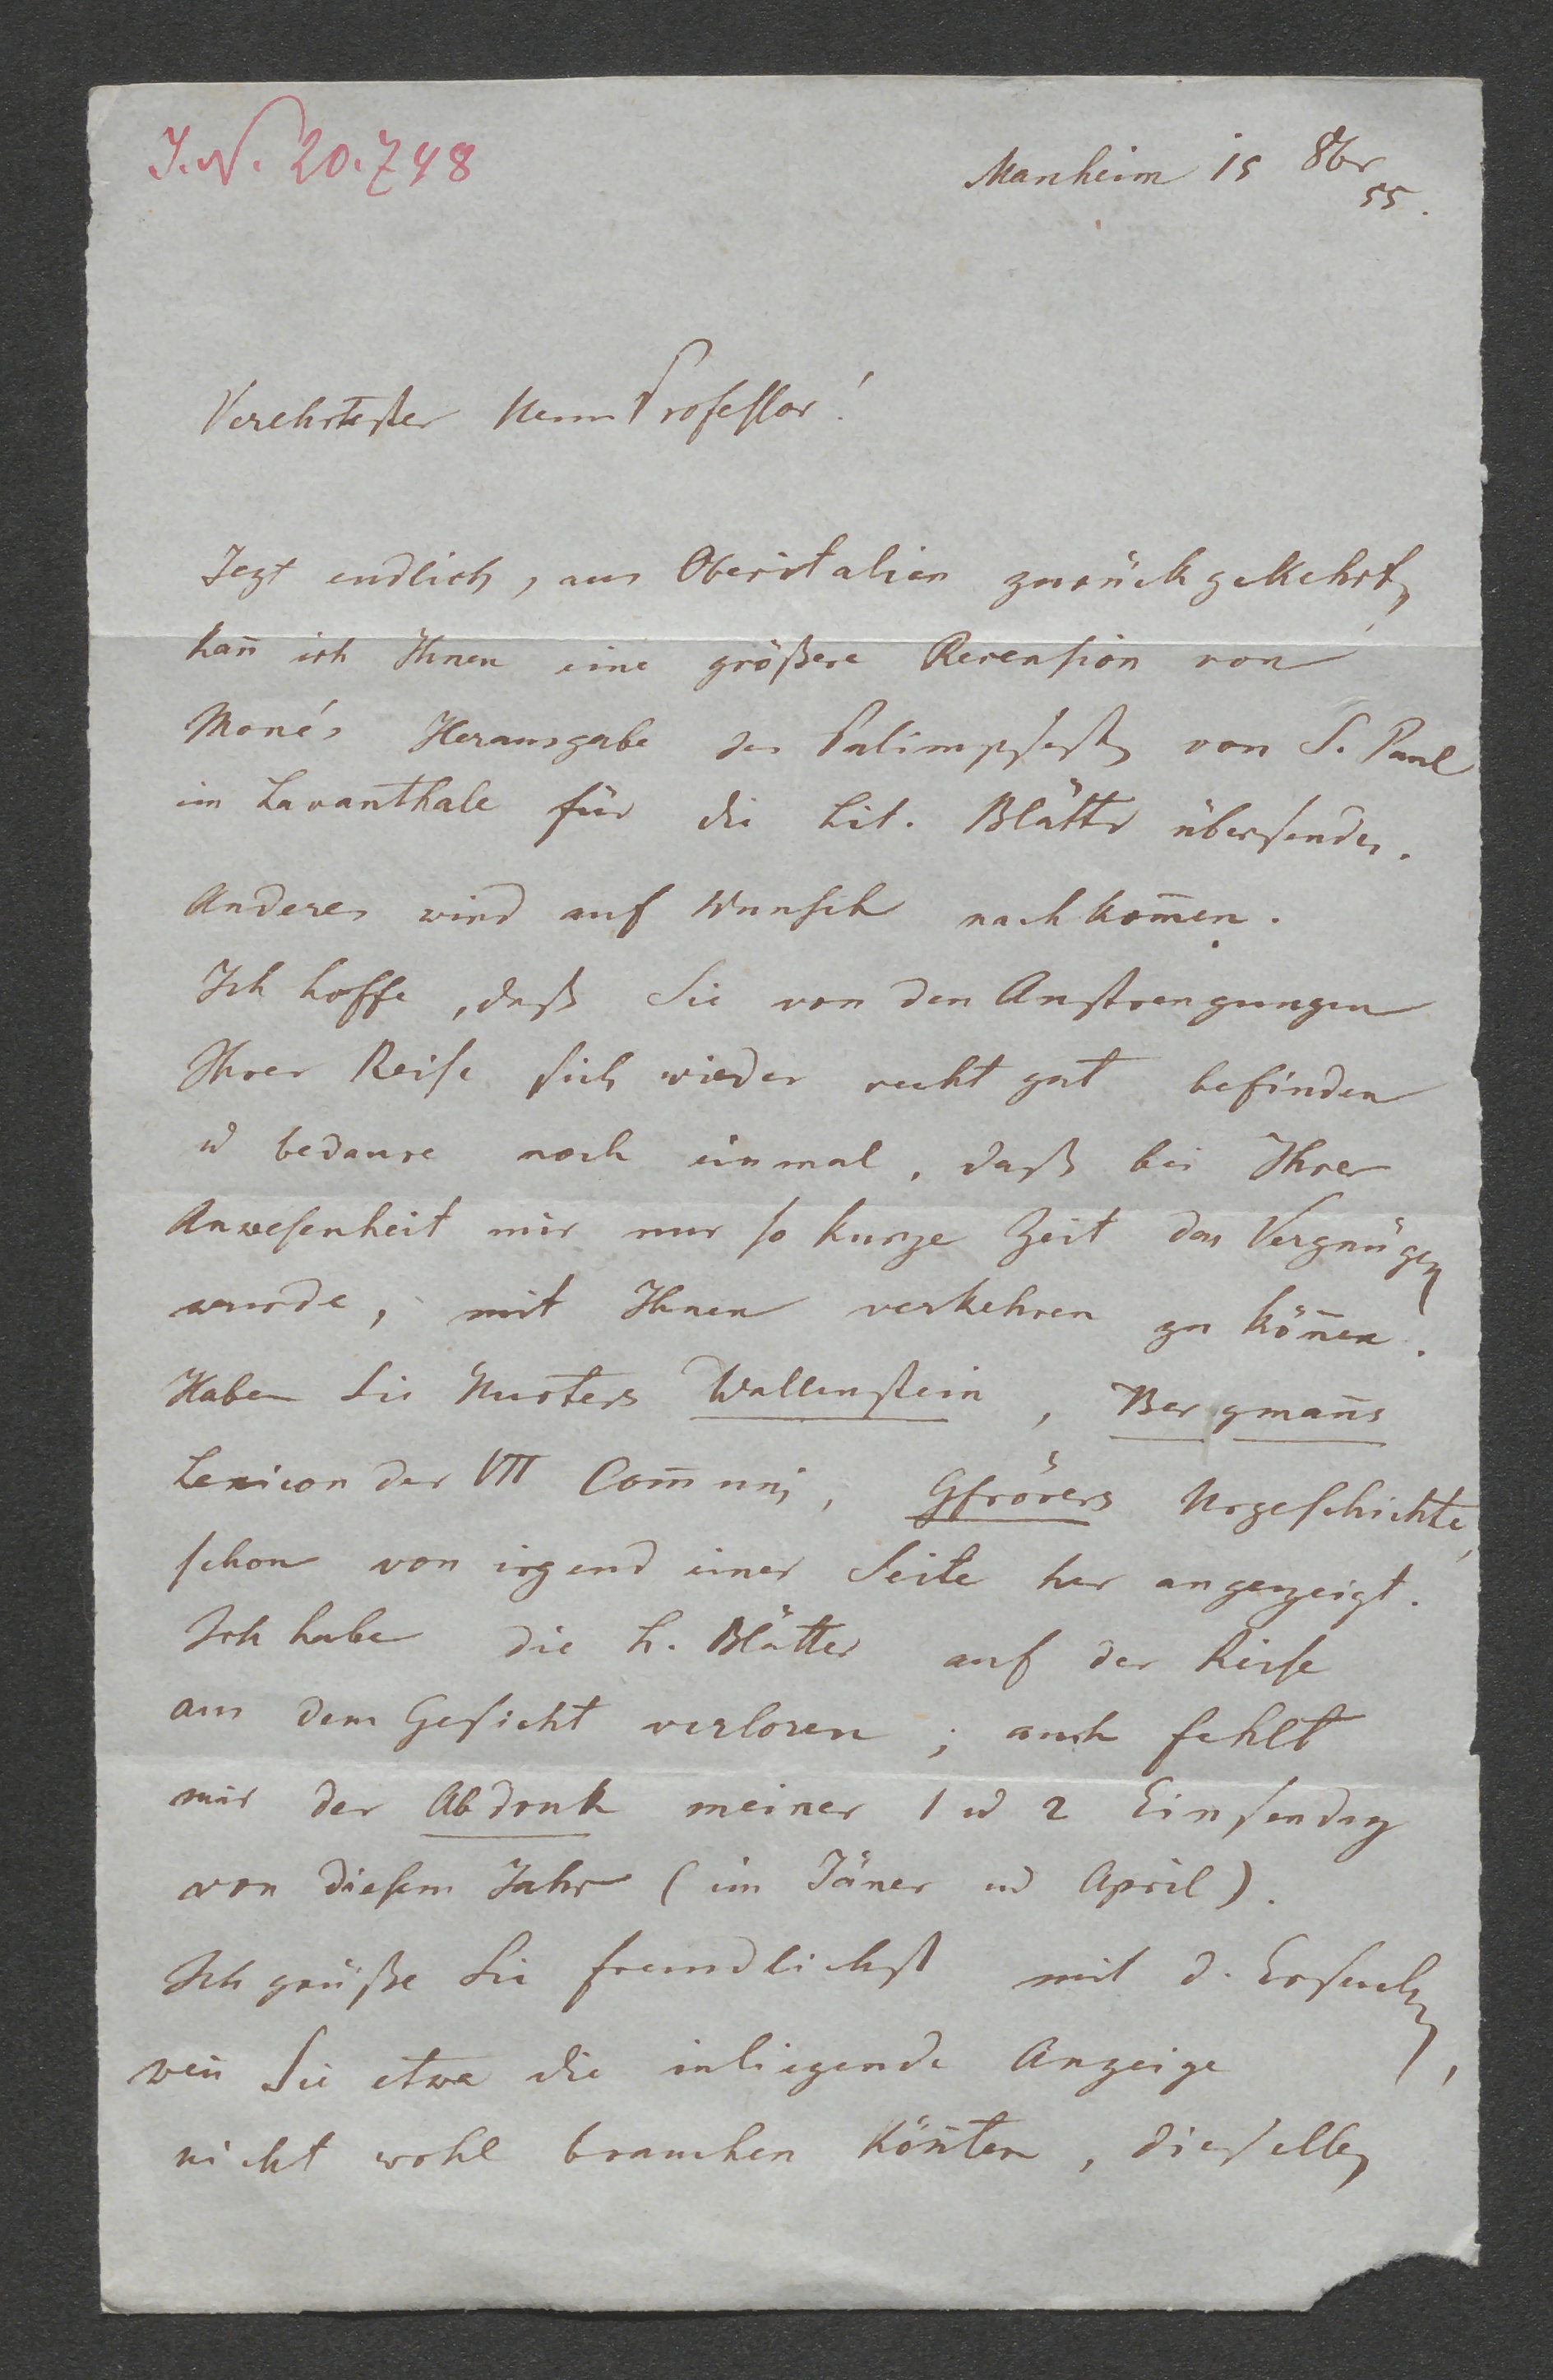 J.N. 20.748
Manheim 15 8br
55.
Verehrtester Herr Professor!
Jezt endlich, aus Oberitalien zurückgekehrt,
kan̅ ich Ihnen eine größere Recension von
Mone's Herausgabe des Palimpsests von S. Paul
im Lavanthale für die Lit. Blätter übersenden.
Anderes wird auf Wunsch nachkom̅en.
Ich hoffe, daß Sie von den Anstrengungen
Ihrer Reise sich wieder recht gut befinden
u bedaure noch einmal, daß bei Ihrer
Anwesenheit mir nur so kurze Zeit das Vergnügen
wurde, mit Ihnen verkehren zu kön̅en.
Haben Sie Hurters Wallenstein, Bergman̅s
Lexicon der VII Com̅uni, Gfrörers Urgeschichte,
schon von irgend einer Seite her angezeigt.
Ich habe die L. Blätter auf der Reise
aus dem Gesicht verloren; auch fehlt
mir der Abdruk meiner 1 u 2 Einsendung
von diesem Jahr (im Jäner u April).
Ich grüße Sie freundlichst mit d. Ersuchen,
wen̅ Sie etwa die inliegende Anzeige
nicht wohl brauchen kön̅ten, dieselbe